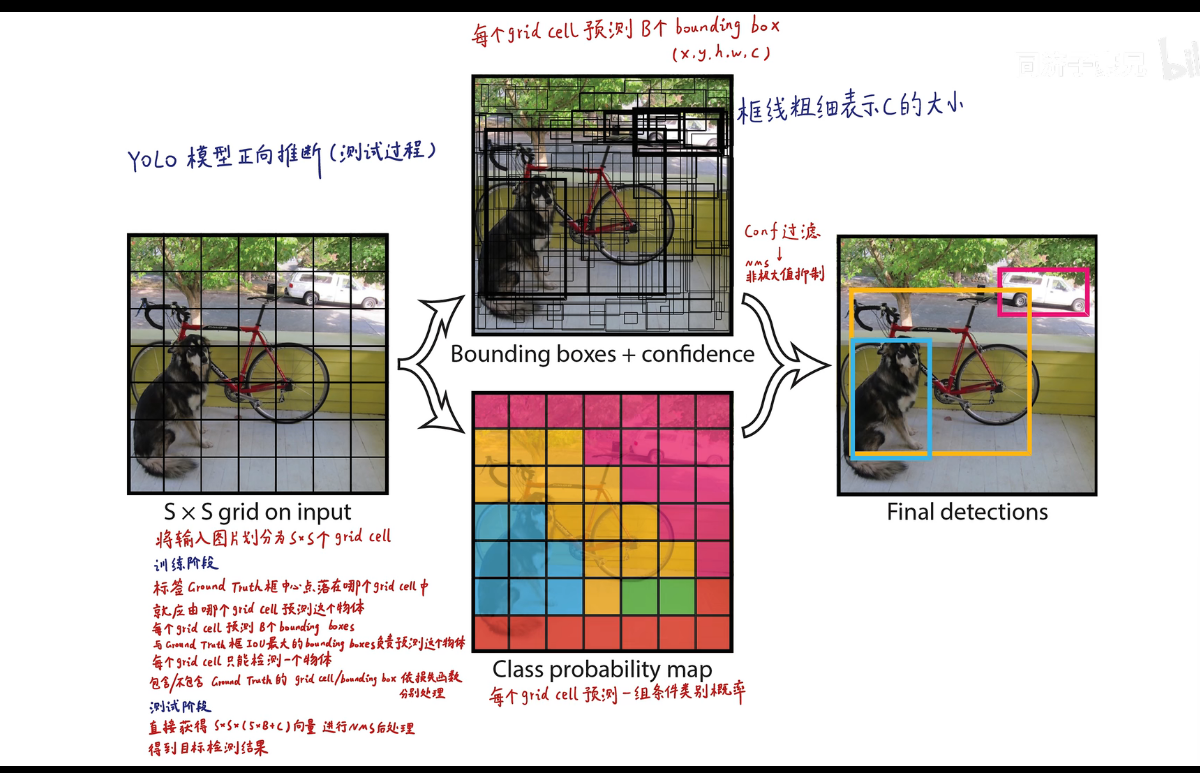 每个grid cell 预测 B个 bounding box
(x.y.h.w.c)
框线粗细表示C的大小
YOLO 模型正向推断(测试过程)
Conf过滤
↓
NMS
非极大值抑制
Bounding boxes + confidence
S × S grid on input
将输入图片划分为S×S个 grid cell
训练阶段
标签Ground Truth框中心点落在哪个grid cell中
就应由哪个grid cell 预测这个物体
每个grid cell 预测 B个bounding boxes
与Ground Truth框 IOU最大的bounding boxes负责预测这个物体
每个grid cell 只能检测一个物体
包含/不包含 Ground Truth 的 grid cell/bounding box 依损失函数
分别处理
测试阶段
直接获得 S×S×(5×B+C)向量 进行NMS后处理
得到目标检测结果
Class probability map
每个grid cell 预测一组条件类别概率
Final detections